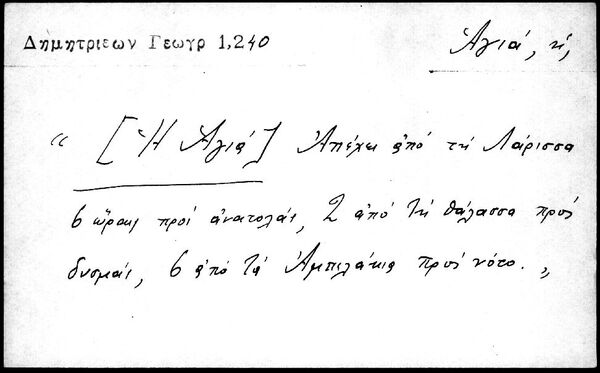 Δημητριεων Γεωγρ 1,240
Ἁγιά, ἡ,
“ [Ἡ Ἁγιά] Ἀπέχει ἀπό τή Λάρισσα
6 ὥραις πρός ἀνατολάς, 2 ἀπό τή θάλασσα πρός
δυσμάς, 6 ἀπό τά Ἀμπελάκια πρός νότο. „